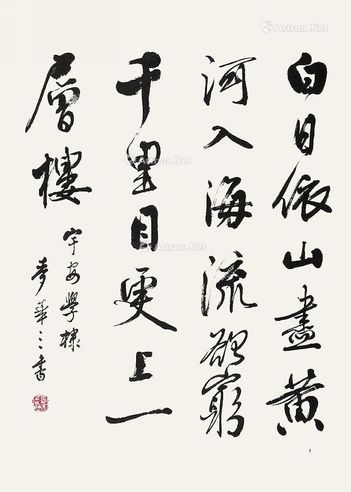 白日依山盡黃
河入海流欲窮
千里目更上一
層樓
宇安學棣
麥華三書
Artron.Net